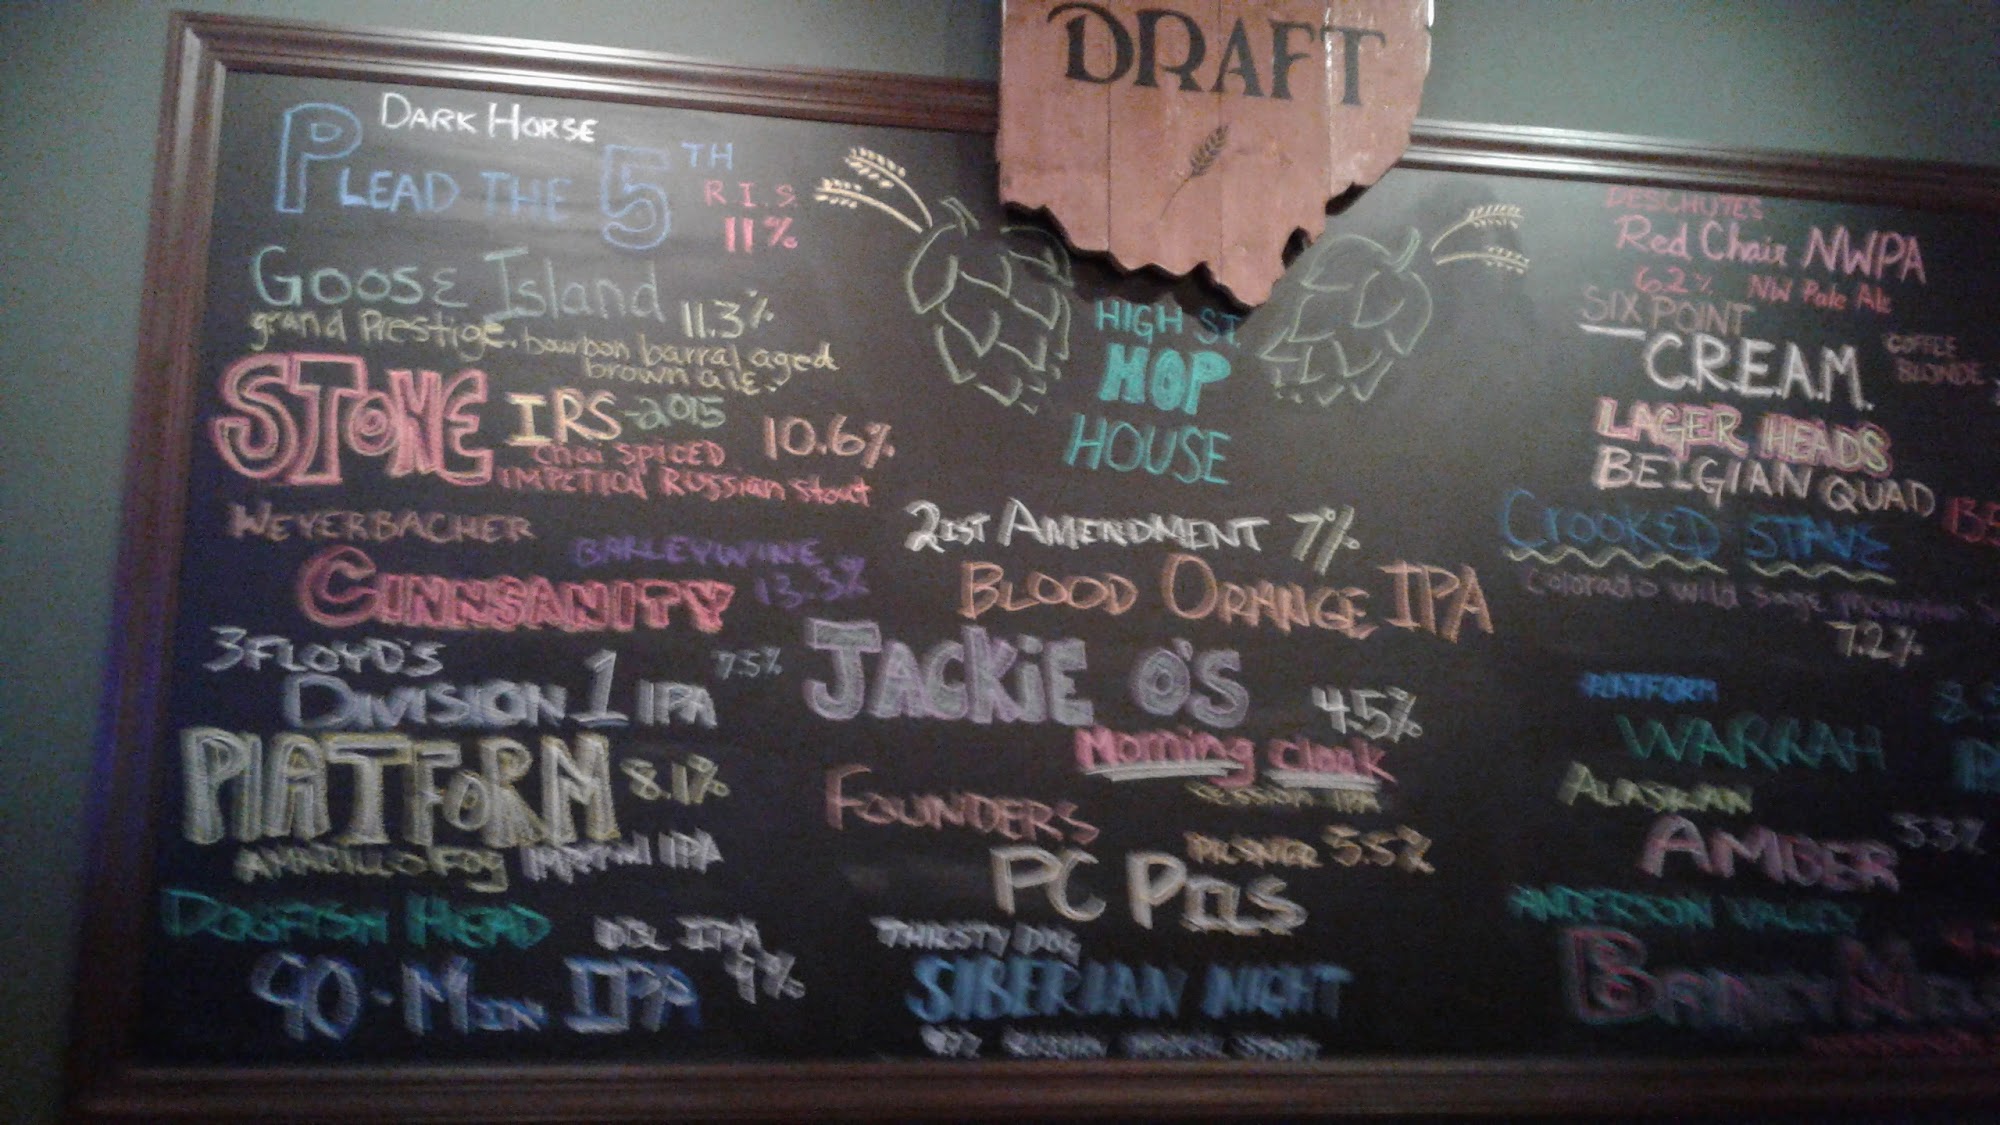 DRAFT
DARK HORSE
PLEAD THE 5TH
R.I.S.
11%
GOOSE Island 11.3%
grand Prestige. bourbon barral aged
brown ale.
STONE IRS-2015 10.6%
chai SPICED
IMPETICA Russian stout
WEYERBACHER
BARLEYWINE
CINNSANITY 13.3%
3 FLOYD'S 7.5%
DIVISION 1 IPA
PLATFORM 8.1%
AMARILLO FOG IPA
DOGFISH HEAD DBL IPA
90-MIN IPA 9%
HIGH ST.
HOP
HOUSE
21ST AMENDMENT 7%
BLOOD ORANGE IPA
JACKIE O'S 4.5%
Morning cloak
SESSION IPA
FOUNDERS
PILSNER 5.5%
PC PILS
THIRSTY DOG
SIBERIAN NIGHT
IMPERIAL STOUT
DESCHUTES
Red Chair NWPA
6.2% NW Pale Ale
SIXPOINT
C.R.E.A.M. COFFEE
BLONDE
LAGER HEADS
BELGIAN QUAD
CROOKED STAVE
Colorado wild sage mountain
7.2%
PLATFORM
WARRAH
ALASKAN
AMBER 5.3%
ANDERSON VALLEY